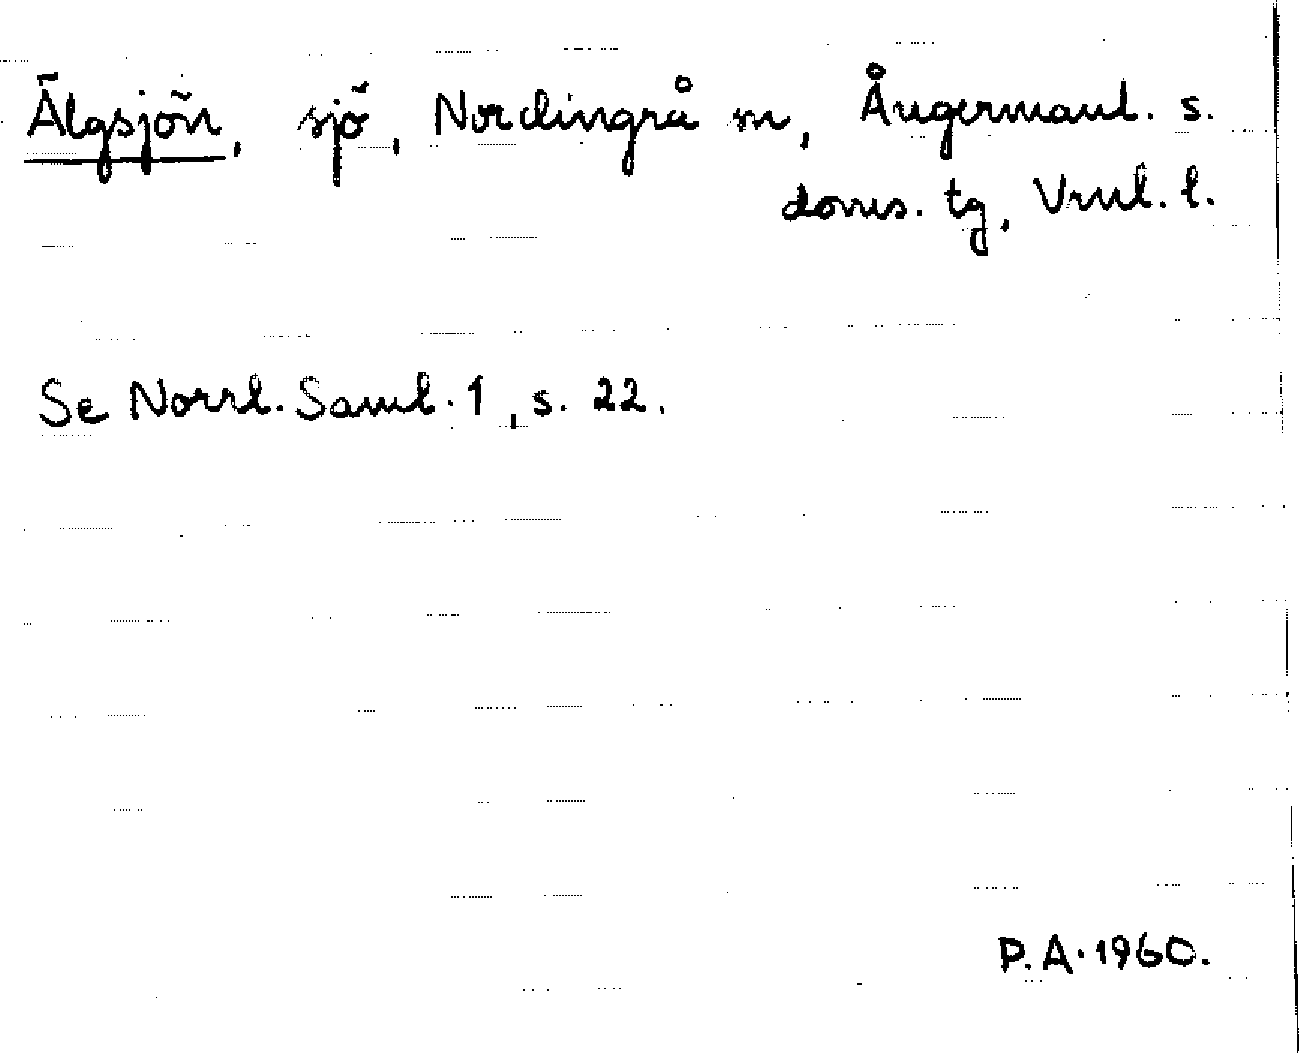 Älgsjön, sjö, Nordingrå sn, Ångermanl. s.
doms. tg, Vrnl. l.
Se Norrl. Saml. 1, s. 22.
P.A. 1960.